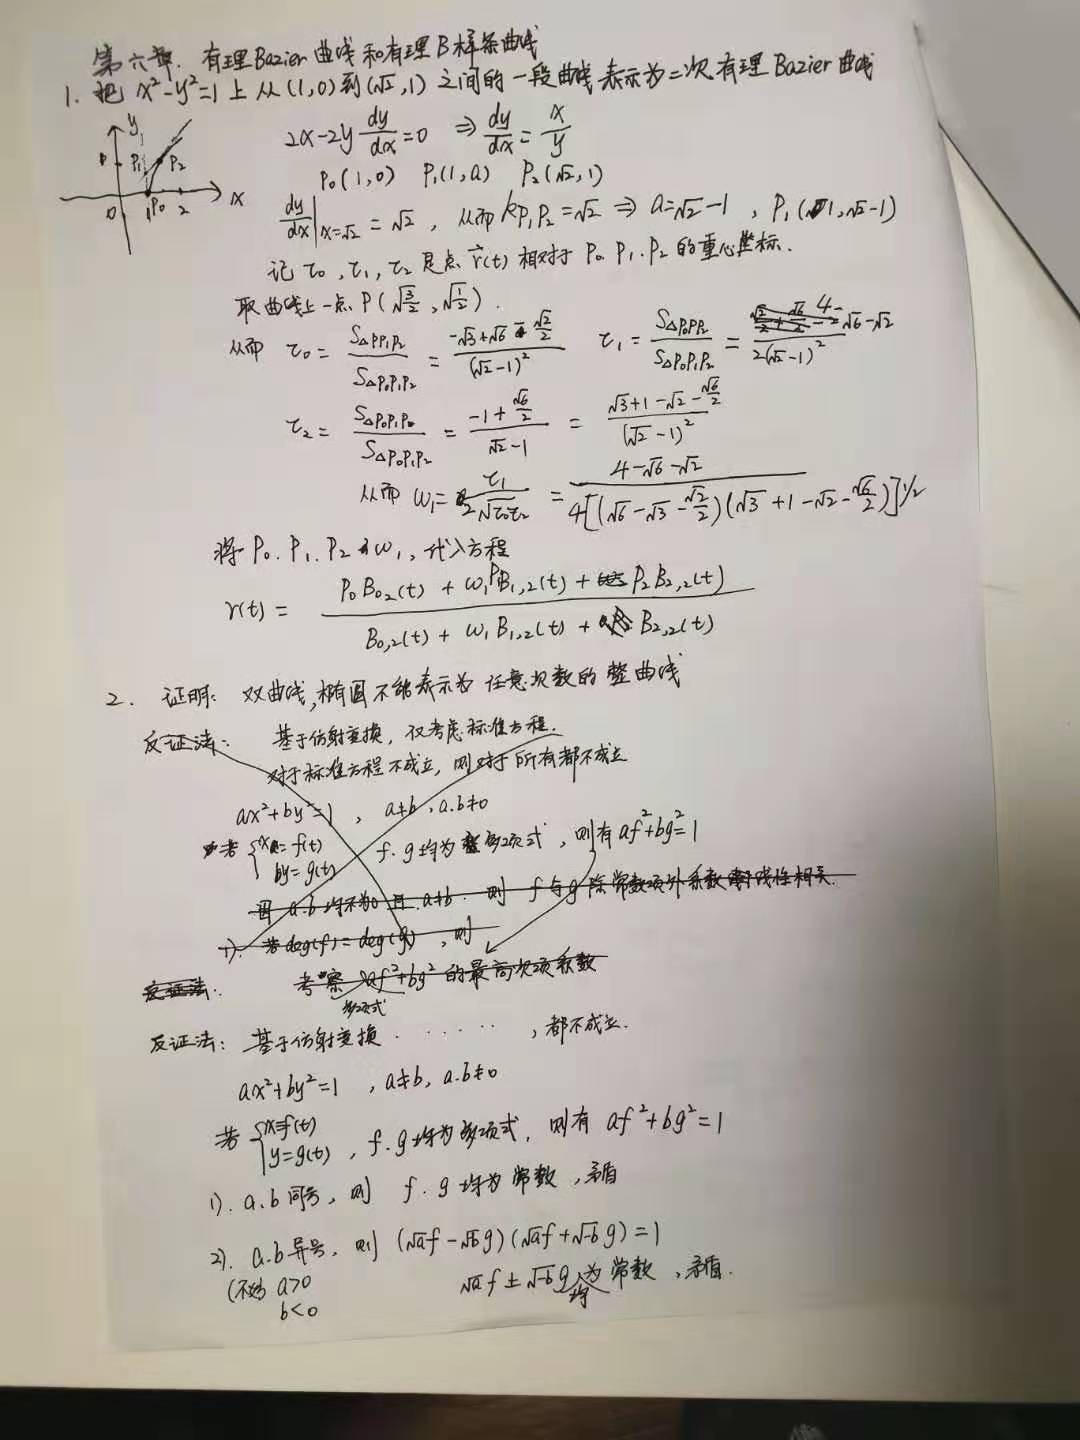 第六章. 有理Bazier曲线和有理B样条曲线
1. 把 x²-y²=1 上从(1,0)到(√2,1)之间的一段曲线表示为二次有理Bazier曲线
y
P₁ P₂
0 1 P₀ 2 x
2x-2y dy/dx=0 ⇒ dy/dx = x/y
P₀(1,0) P₁(1,a) P₂(√2,1)
dy/dx|x=√2 = √2, 从而 kP₁P₂=√2 ⇒ a=√2-1, P₁(1,√2-1)
记 τ₀,τ₁,τ₂是点 r(t) 相对于 P₀ P₁.P₂的重心坐标.
取曲线上一点P(√3/2,√1/2).
从而 τ₀= S△PP₁P₂/S△P₀P₁P₂ = (-√3+√6-√2/2)/(√2-1)² τ₁= S△P₀PP₂/S△P₀P₁P₂ = (4-√6-√2)/2(√2-1)²
τ₂= S△P₀P₁P/S△P₀P₁P₂ = (-1+√6/2)/(√2-1) = (√3+1-√2-√6/2)/(√2-1)²
从而 ω₁= τ₁/2√τ₀τ₂ = (4-√6-√2)/4[(√6-√3-√2/2)(√3+1-√2-√6/2)]^1/2
将P₀.P₁.P₂和ω₁,代入方程
r(t) = (P₀B₀,₂(t) + ω₁P₁B₁,₂(t) + P₂B₂,₂(t))/(B₀,₂(t) + ω₁B₁,₂(t) + B₂,₂(t))
2. 证明: 双曲线,椭圆不能表示为任意次数的整曲线
反证法: 基于仿射变换, 仅考虑标准方程.
对于标准方程不成立, 则对于所有都不成立
ax²+by²=1, a≠b, a.b≠0
若 {x=f(t) f.g均为多项式, 则有af²+bg²=1
by=g(t)
因 a.b均不为0且a≠b. 则 f与g除常数项外系数线性相关.
1). 若deg(f)=deg(g), 则
反证法. 考察 af²+bg² 的最高次项系数
多项式
反证法: 基于仿射变换. ······, 都不成立.
ax²+by²=1, a≠b, a.b≠0
若 {x=f(t)
y=g(t), f.g均为多项式, 则有 af²+bg²=1
1). a.b同号, 则 f.g均为常数, 矛盾
2). a.b异号, 则 (√af-√-bg)(√af+√-bg)=1
(不妨 a>0 √af±√-bg 均为常数, 矛盾.
b<0